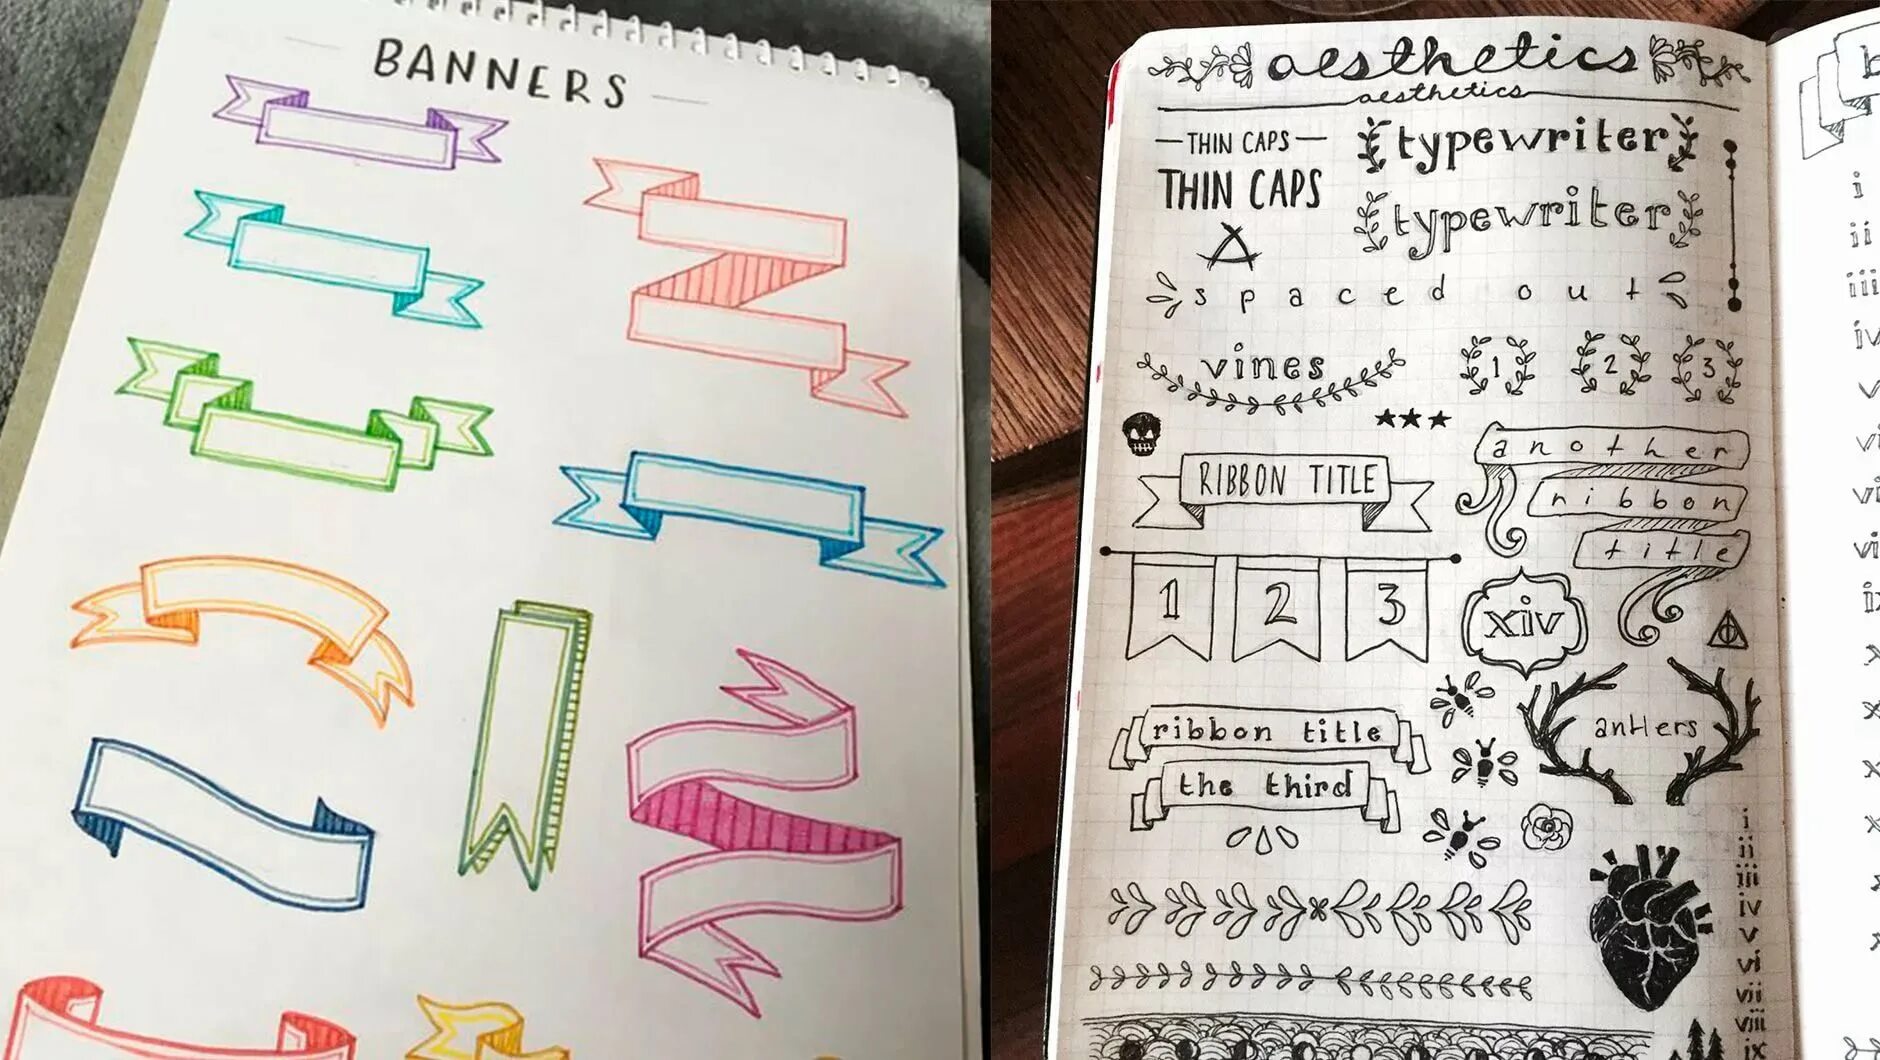 BANNERS
aesthetics
aesthetics
THIN CAPS
THIN CAPS
typewriter
typewriter
spaced out
vines
1 2 3
RIBBON TITLE
another
ribbon
title
1 2 3
xiv
antlers
ribbon title
the third
i
ii
iii
iv
v
vi
vii
viii
ix
i
ii
iii